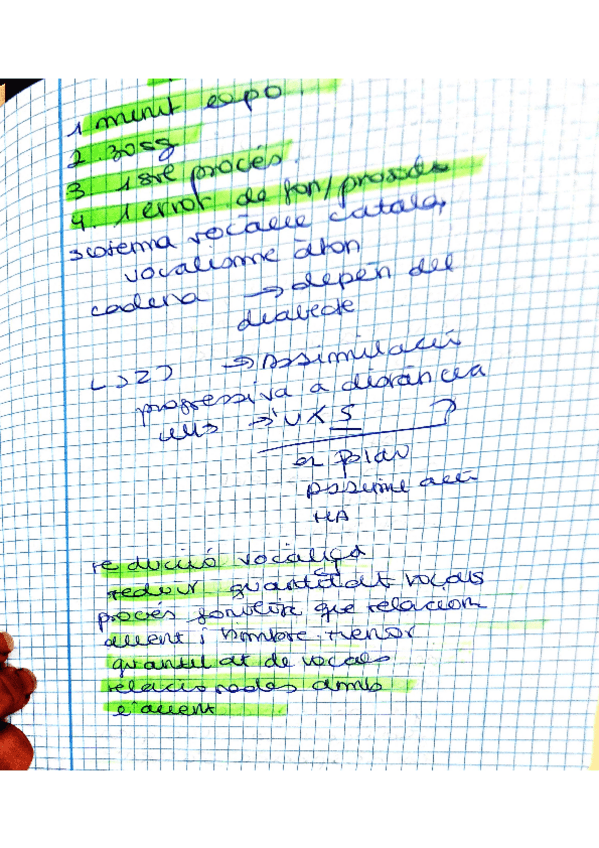 1 minut expo
2. 30sg
3 1 sre procés.
4. 1 error de fon/prosod
sistema vocàlic català,
vocalisme àton
cadena → depèn del
dialecte
→ Assimilació
progressiva a distància
→
plau
HA
reducció vocàlica
reduir quantitat vocals
procés que relacion
accent i nombre menor
quantitat de vocals
relacionades amb
l'accent